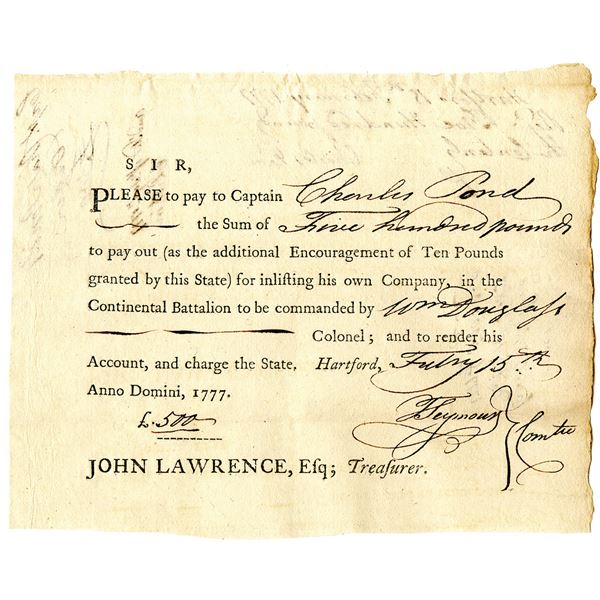 SIR,
PLEASE to pay to Captain Charles Pond
the Sum of Five hundred pounds
to pay out (as the additional Encouragement of Ten Pounds
granted by this State) for inlisting his own Company, in the
Continental Battalion to be commanded by Wm Douglass
Colonel; and to render his
Account, and charge the State. Hartford, Febry 15th
Anno Domini, 1777.
T Seymour } Comtee
£.500
JOHN LAWRENCE, Esq; Treasurer.